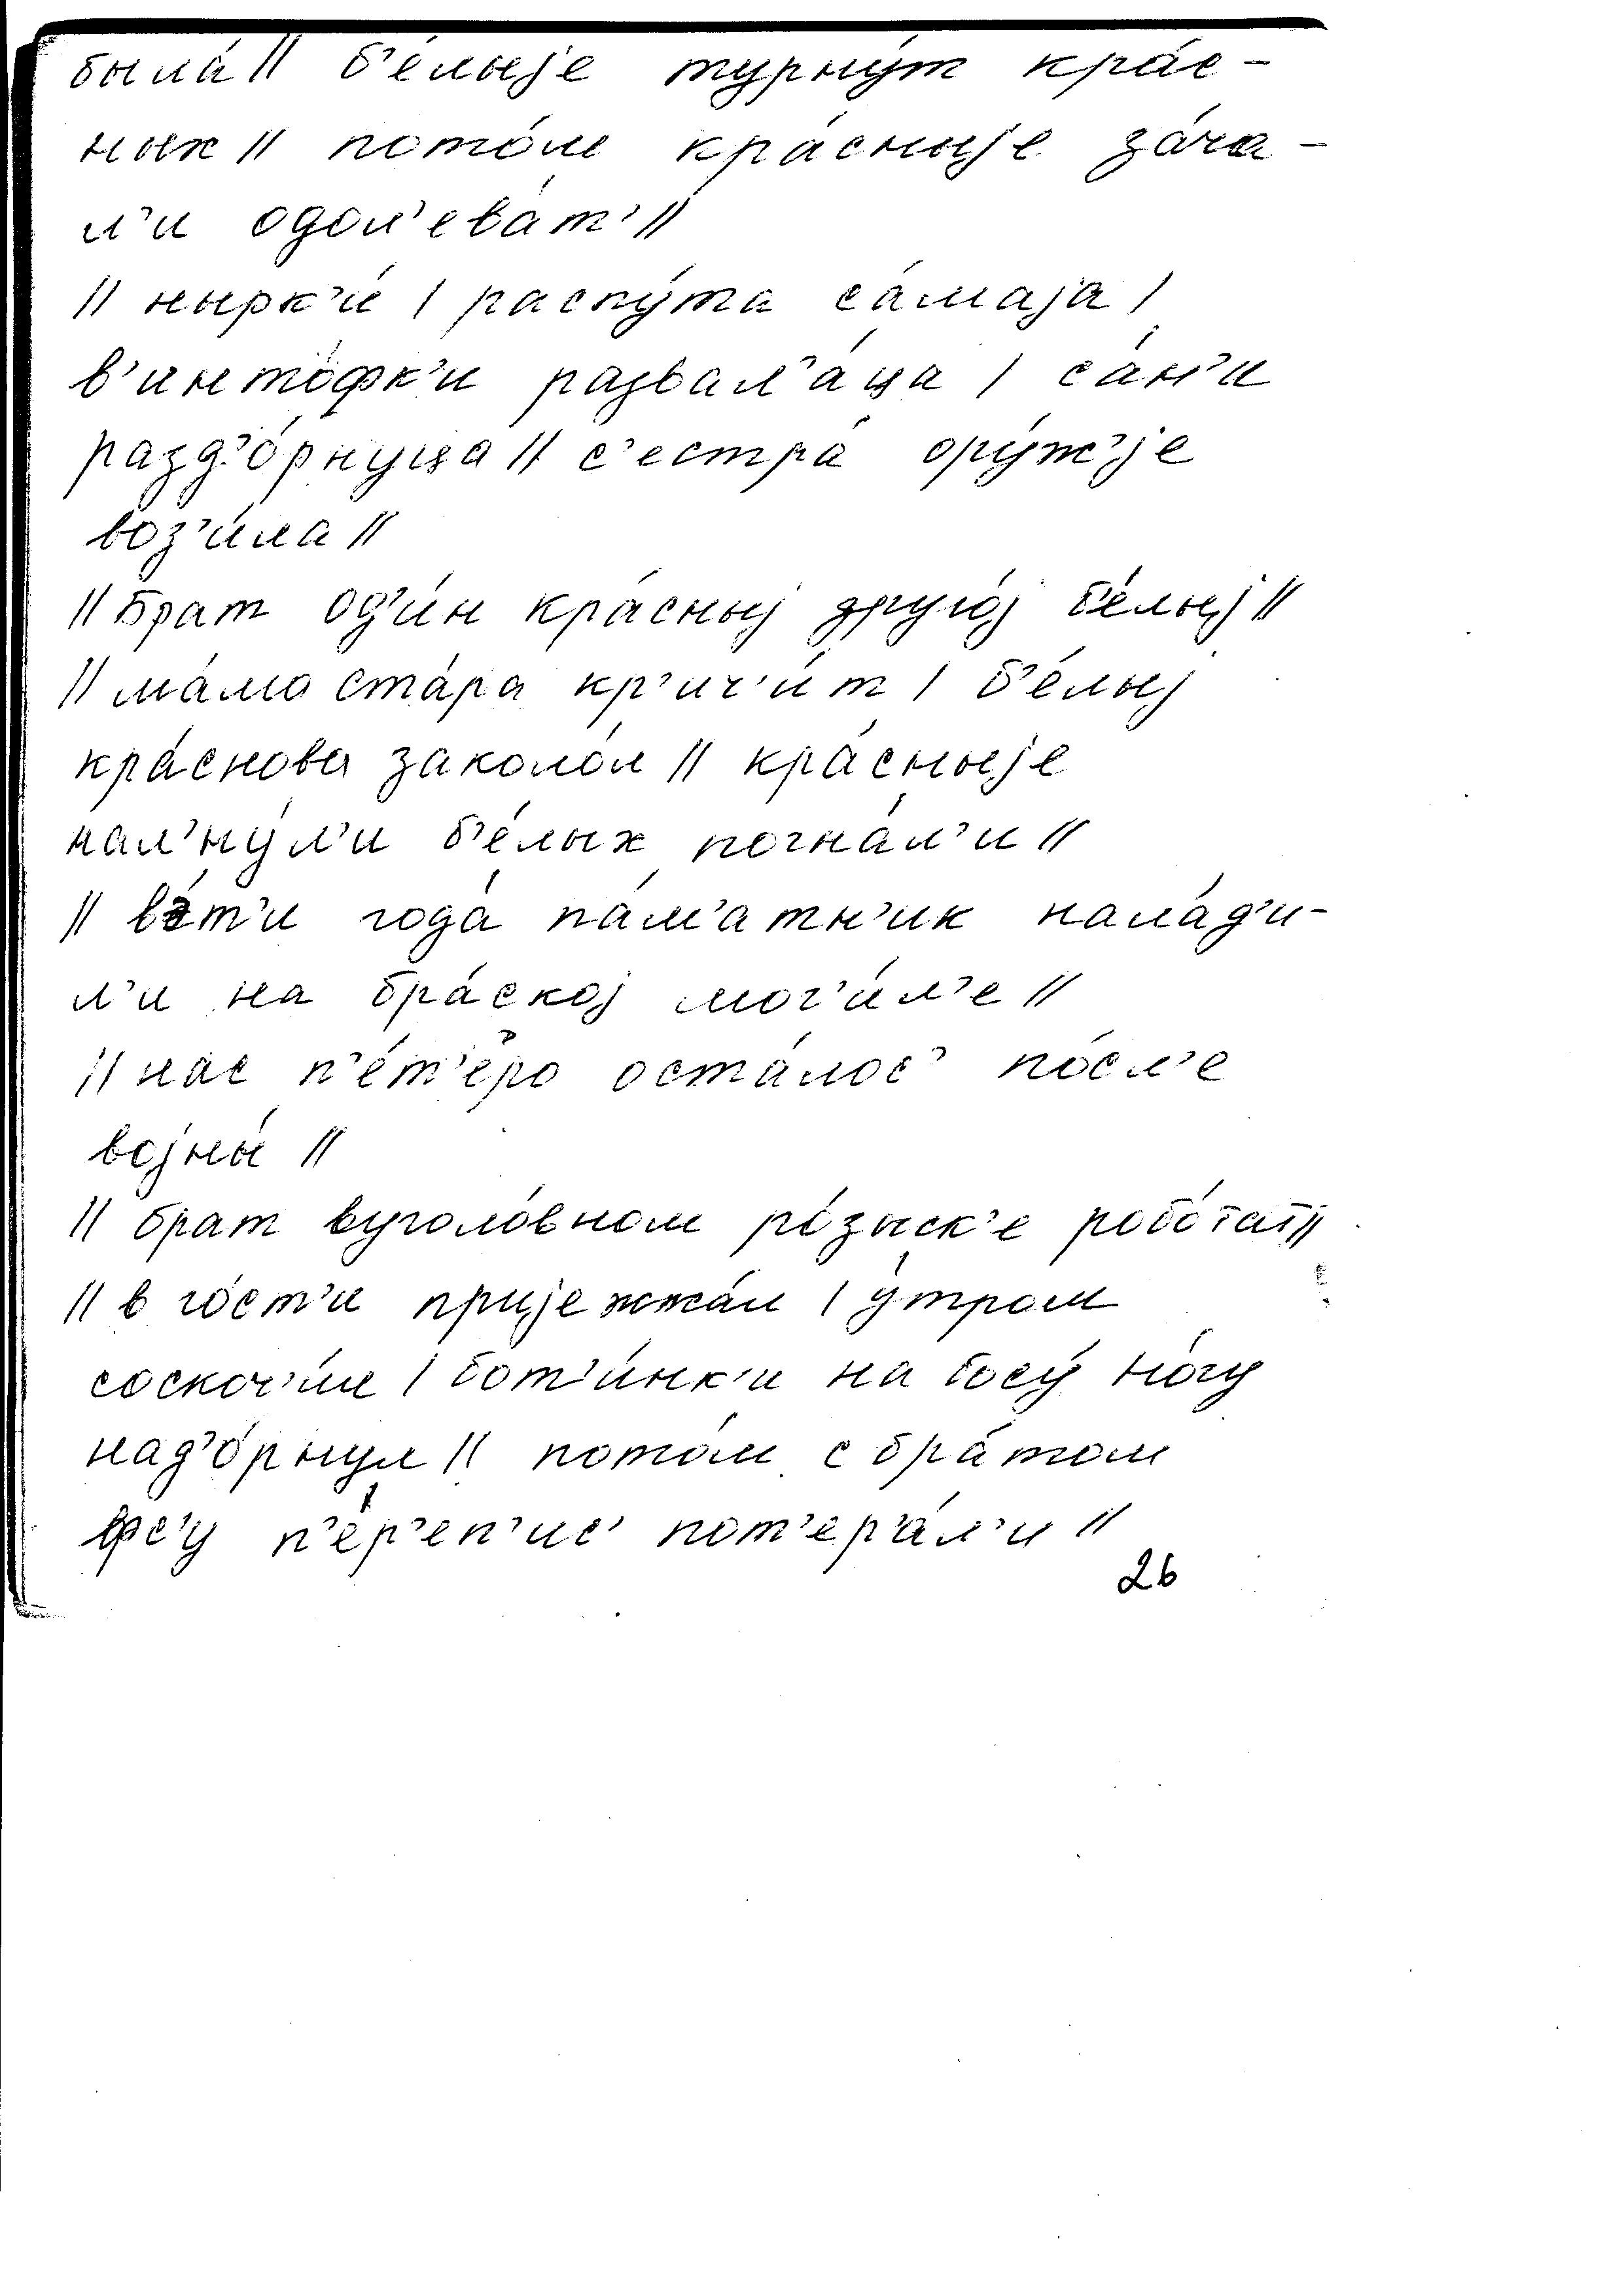 была́ // б'е́лыjе турну́т кра́с-
ных // пото́м кра́сныjе за́ча-
л'и одол'ева́т' //
// нырк'и́ / распу́та са́маjа /
в'инто́фк'и развал'а́ца / са́н'и
разд'о́рнуца // с'естра́ ору́ж'jе
воз'и́ла //
// Брат од'и́н кра́сныj друго́j б'е́лыj //
// ма́ма ста́ра кр'ич'и́т / б'е́лыj
кра́снова заколо́л // кра́сныjе
нал'ну́л'и б'е́лых погна́л'и //
// вэ́т'и года́ па́м'атн'ик нала́д'и-
л'и на бра́скоj мог'и́л'е //
// нас п'е́т'еро оста́лос' по́сл'е
воjны́ //
// брат вуголо́вном ро́зыск'е робо́тат //
// в го́ст'и приjежжа́л / у́тром
соскоч'и́л / бот'и́нк'и на босу́ но́гу
над'о́рнул // пото́м с бра́том
фс'у п'е́р'еп'ис' пот'ер'а́л'и //
26